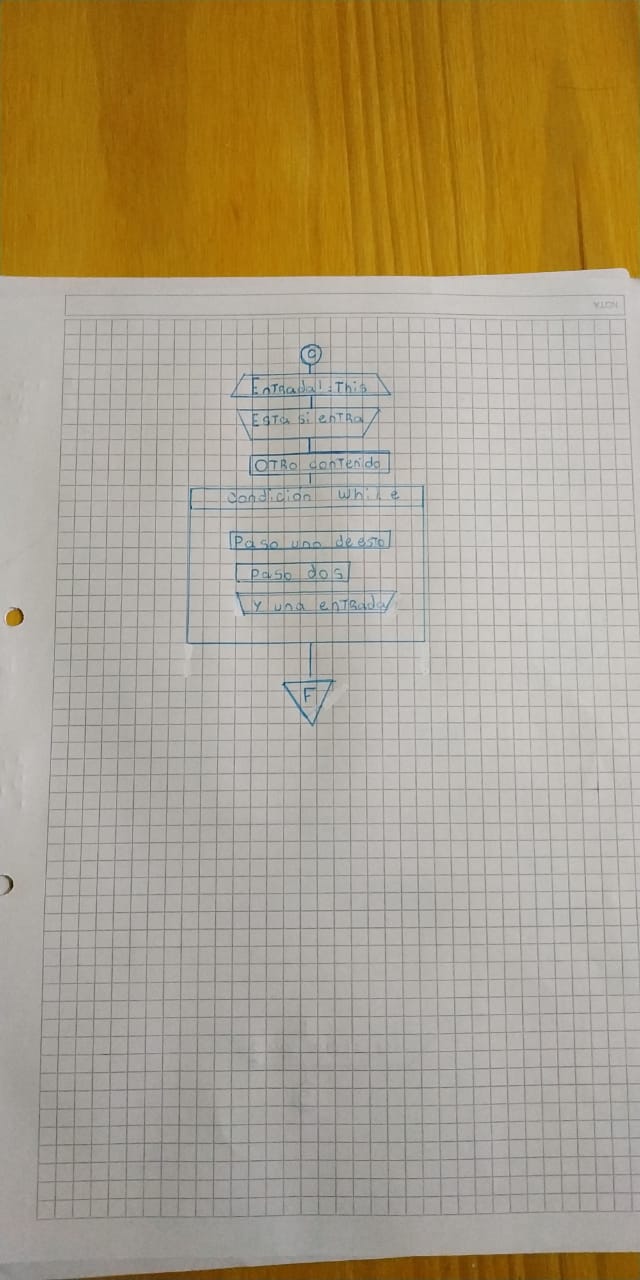 NOTA
a
Entrada!=This
Esta si entra
Otro contenido
Condición While
Paso uno de esto
Paso dos
Y una entrada
F